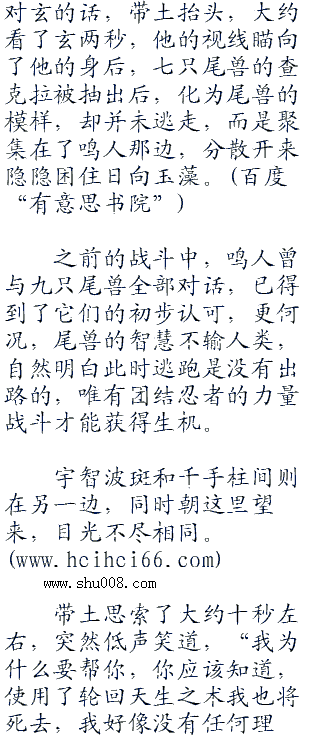 对玄的话，带土抬头，大约
看了玄两秒，他的视线瞄向
了他的身后，七只尾兽的查
克拉被抽出后，化为尾兽的
模样，却并未逃走，而是聚
集在了鸣人那边，分散开来
隐隐困住日向玉藻。(百度
“有意思书院”)
之前的战斗中，鸣人曾
与九只尾兽全部对话，已得
到了它们的初步认可，更何
况，尾兽的智慧不输人类，
自然明白此时逃跑是没有出
路的，唯有团结忍者的力量
战斗才能获得生机。
宇智波斑和千手柱间则
在另一边，同时朝这里望
来，目光不尽相同。
(www.hcihci66.com)
www.shu008.com
带土思索了大约十秒左
右，突然低声笑道，“我为
什么要帮你，你应该知道，
使用了轮回天生之术我也将
死去，我好像没有任何理